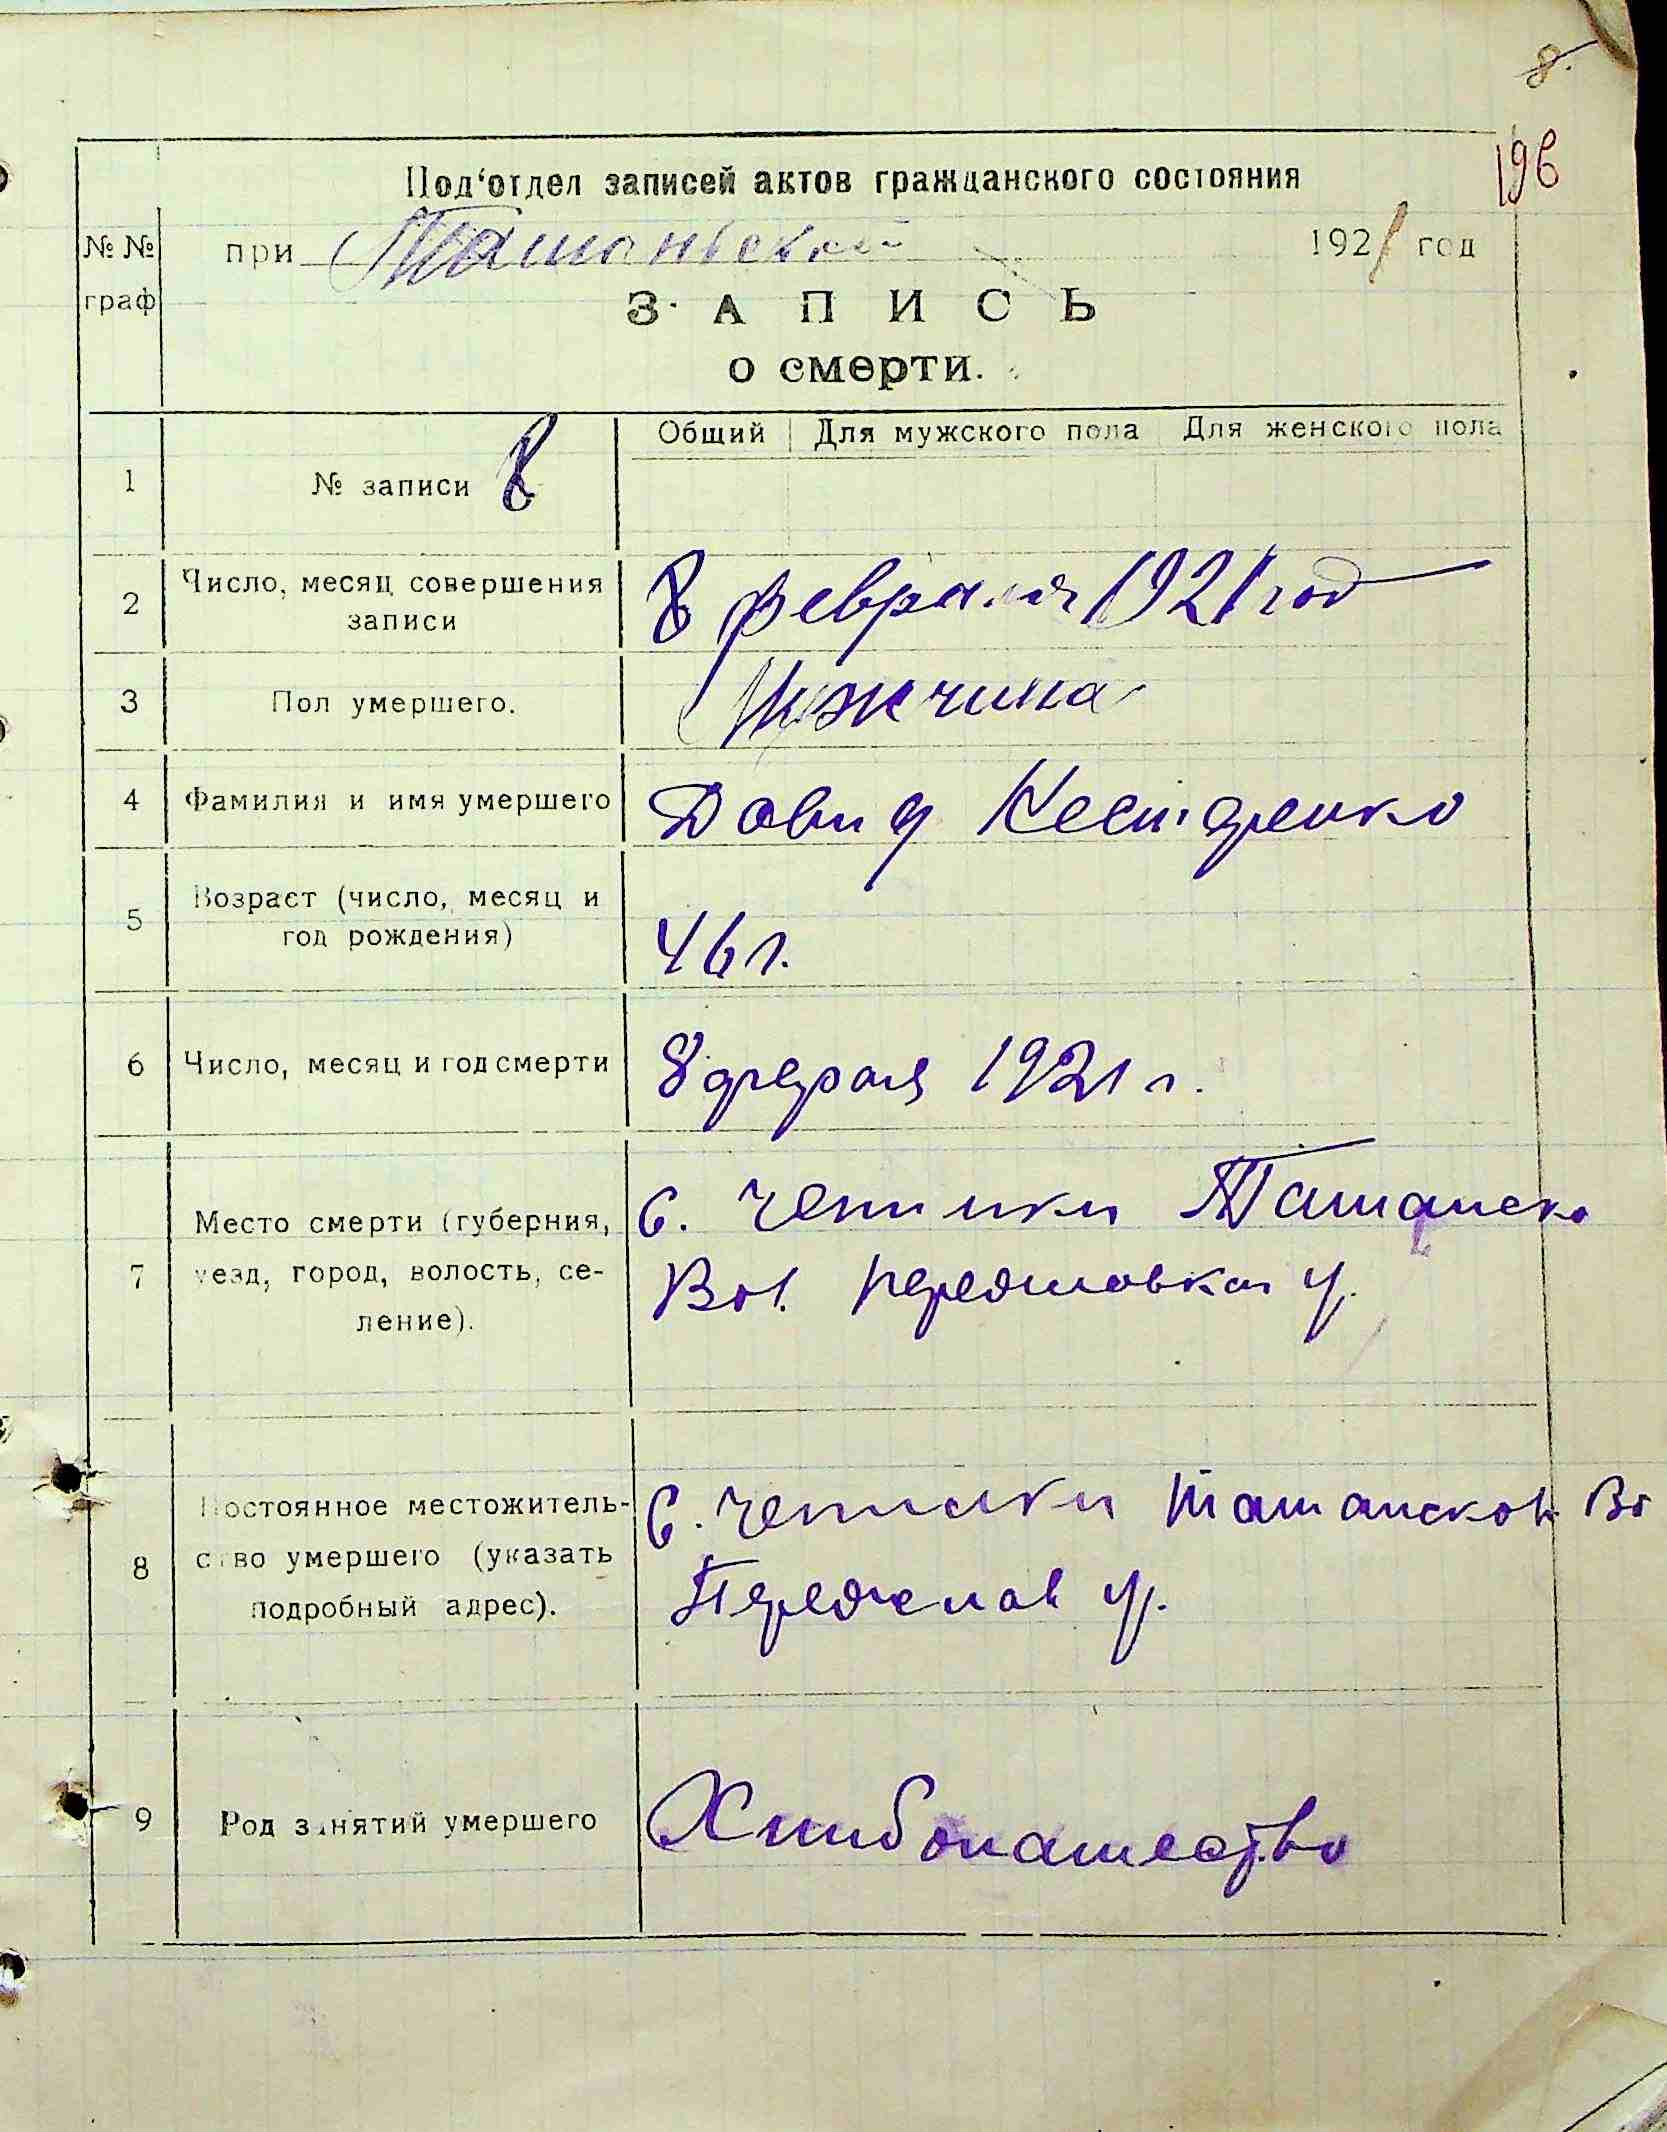 8.
196
Под'отдел записей актов гражданского состояния
№ № граф
при Ташаньской 1921 год
ЗАПИСЬ
о смерти.
Общий Для мужского пола Для женского пола
1 № записи 8
2 Число, месяц совершения
записи
8 февраля 1921 год
3 Пол умершего. Мужчина
4 Фамилия и имя умершего Давид Нестеренко
5 Возраст (число, месяц и
год рождения)
46 г.
6 Число, месяц и год смерти 8 февраля 1921 г.
7 Место смерти (губерния,
уезд, город, волость, се-
ление).
с. Чепилки Ташанско
Вол. Переяловской у.
8 Постоянное местожитель-
ство умершего (указать
подробный адрес).
С. Чепилки Ташанской Во
Переяслов у.
9 Род занятий умершего Хлибопашество